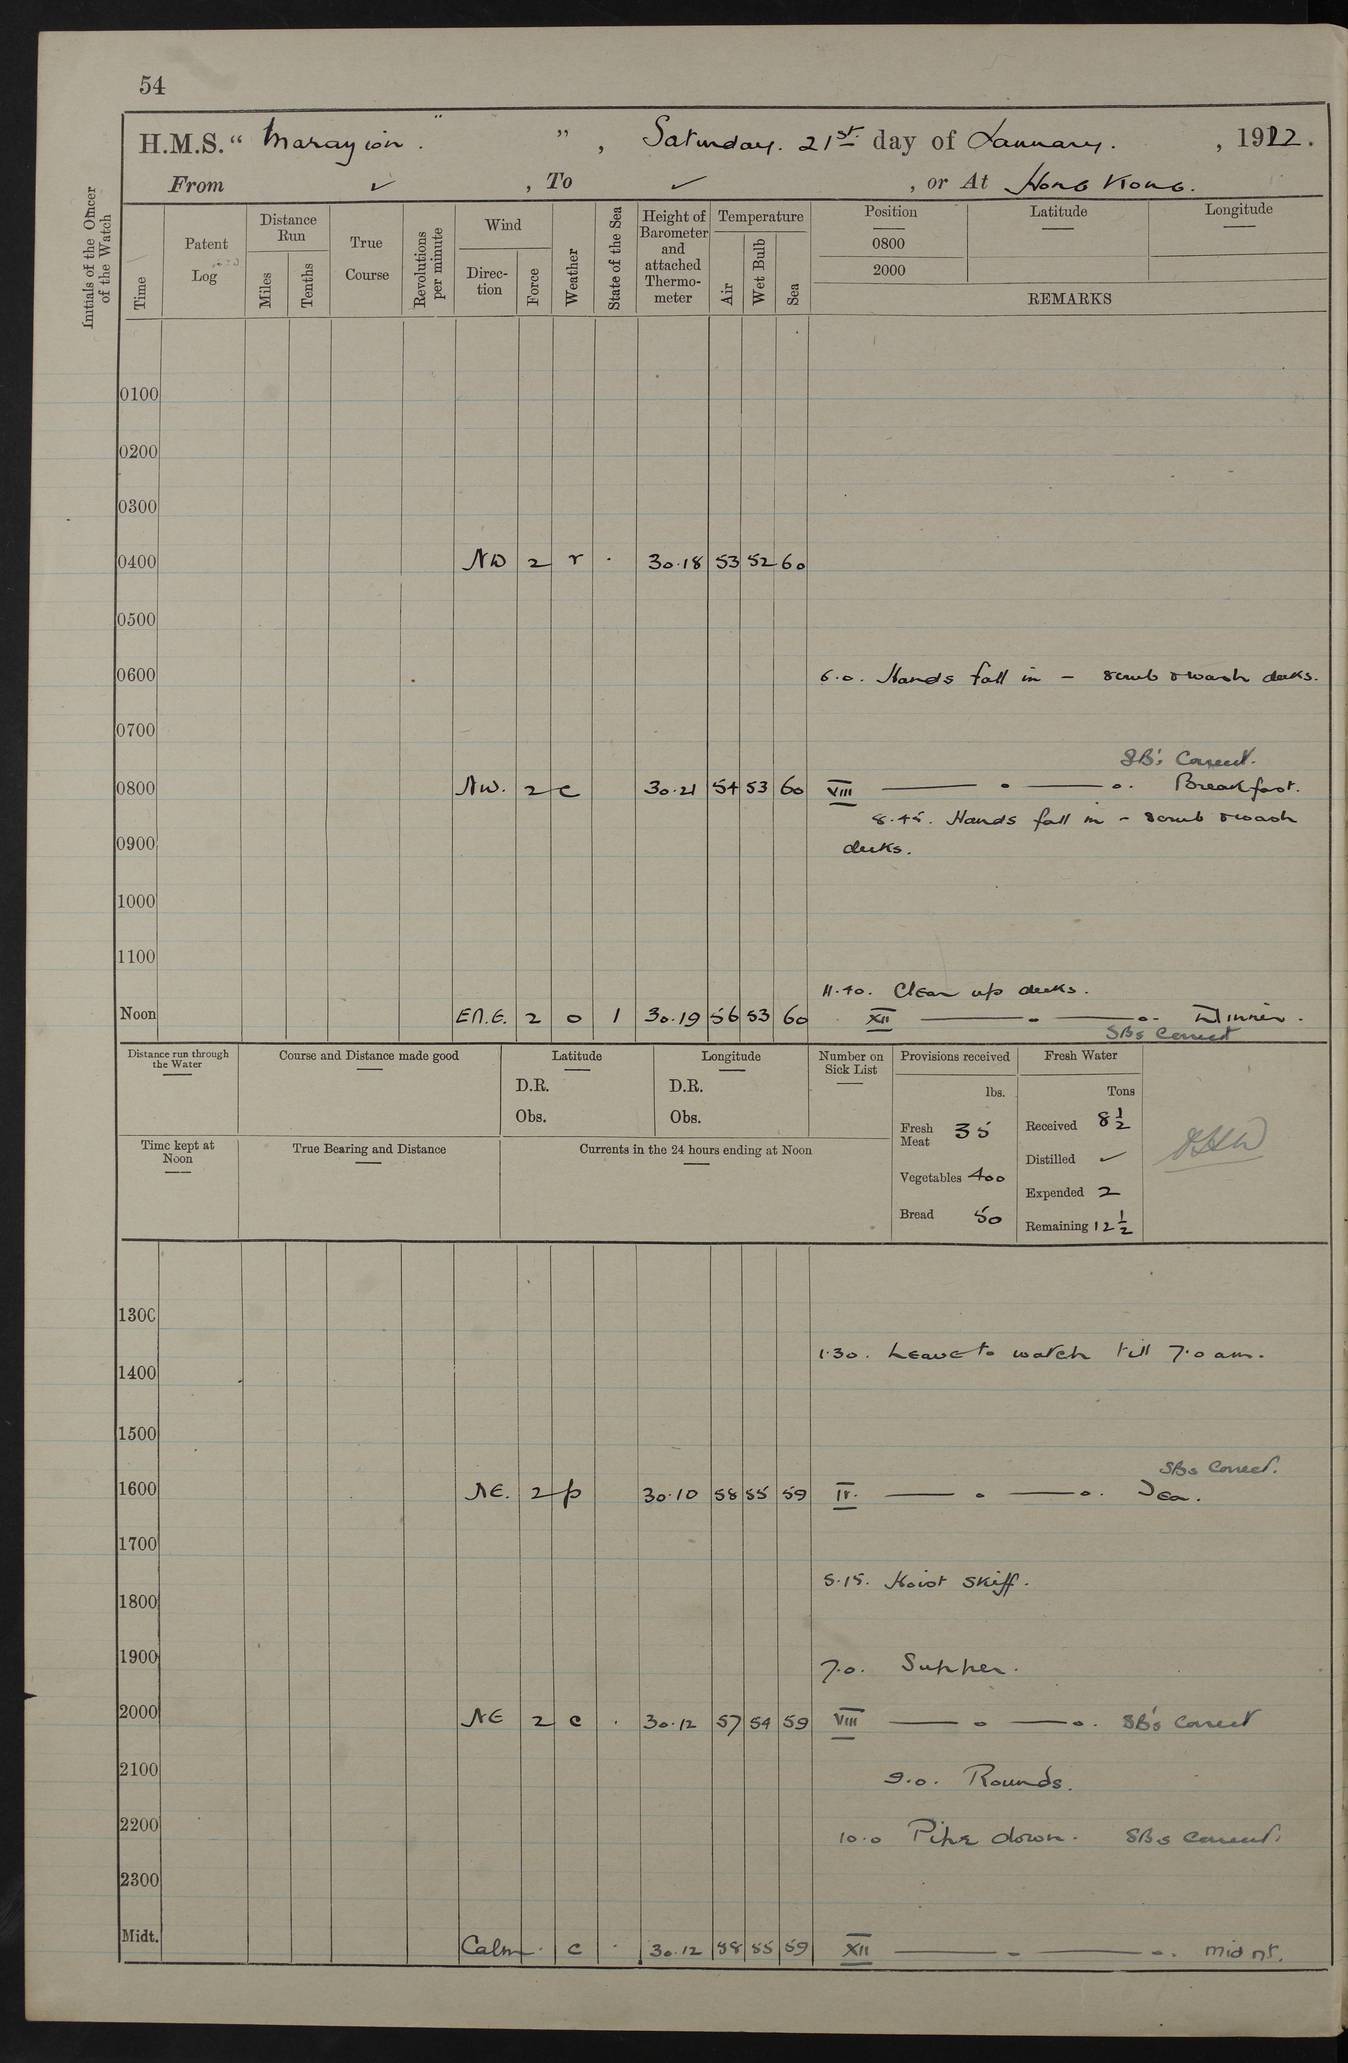 54
H.M.S. " Marazion . " " , Saturday. 21st. day of January. , 1922.
From ✓ , To ✓ , or At Hong Kong.
Initials of the Officer of the Watch
Time Patent Log Distance Run Miles Tenths True Course Revolutions per minute Wind Direc-tion Force Weather State of the Sea Height of Barometer and attached Thermo-meter Temperature Air Wet Bulb Sea
Position Latitude Longitude
0800
2000
REMARKS
0100
0200
0300
0400 NW 2 r . 30.18 53 52 60
0500
0600 6.0. Hands fall in – scrub & wash decks.
0700
SB's Correct.
0800 NW. 2 c 30.21 54 53 60 VIII ——— o ——— o. Breakfast.
8.45. Hands fall in – scrub & wash
0900 decks.
1000
1100
11.40. Clear up decks.
Noon EN.E. 2 o 1 30.19 56 53 60 XII ——— o ——— o. Dinner.
SBs Correct
Distance run through the Water Course and Distance made good Latitude Longitude Number on Sick List Provisions received Fresh Water
D.R. D.R. lbs. Tons
Obs. Obs. Fresh Meat 35 Received 8 1/2
Time kept at Noon True Bearing and Distance Currents in the 24 hours ending at Noon
Distilled ✓
Vegetables 400 Expended 2
Bread 50 Remaining 12 1/2
1300
1.30. Leave to watch till 7.0 am.
1400
1500
SBs Correct.
1600 NE. 2 p 30.10 58 55 59 IV. ——— o ——— o. Tea.
1700
5.15. Hoist skiff.
1800
1900 7.0. Supper.
2000 NE 2 c . 30.12 57 54 59 VIII ——— o ——— o. SB's Correct
2100 9.0. Rounds.
2200 10.0 Pipe down. SBs Correct.
2300
Midt. Calm. c . 30.12 58 55 59 XII ——— o ——— o. midnt.